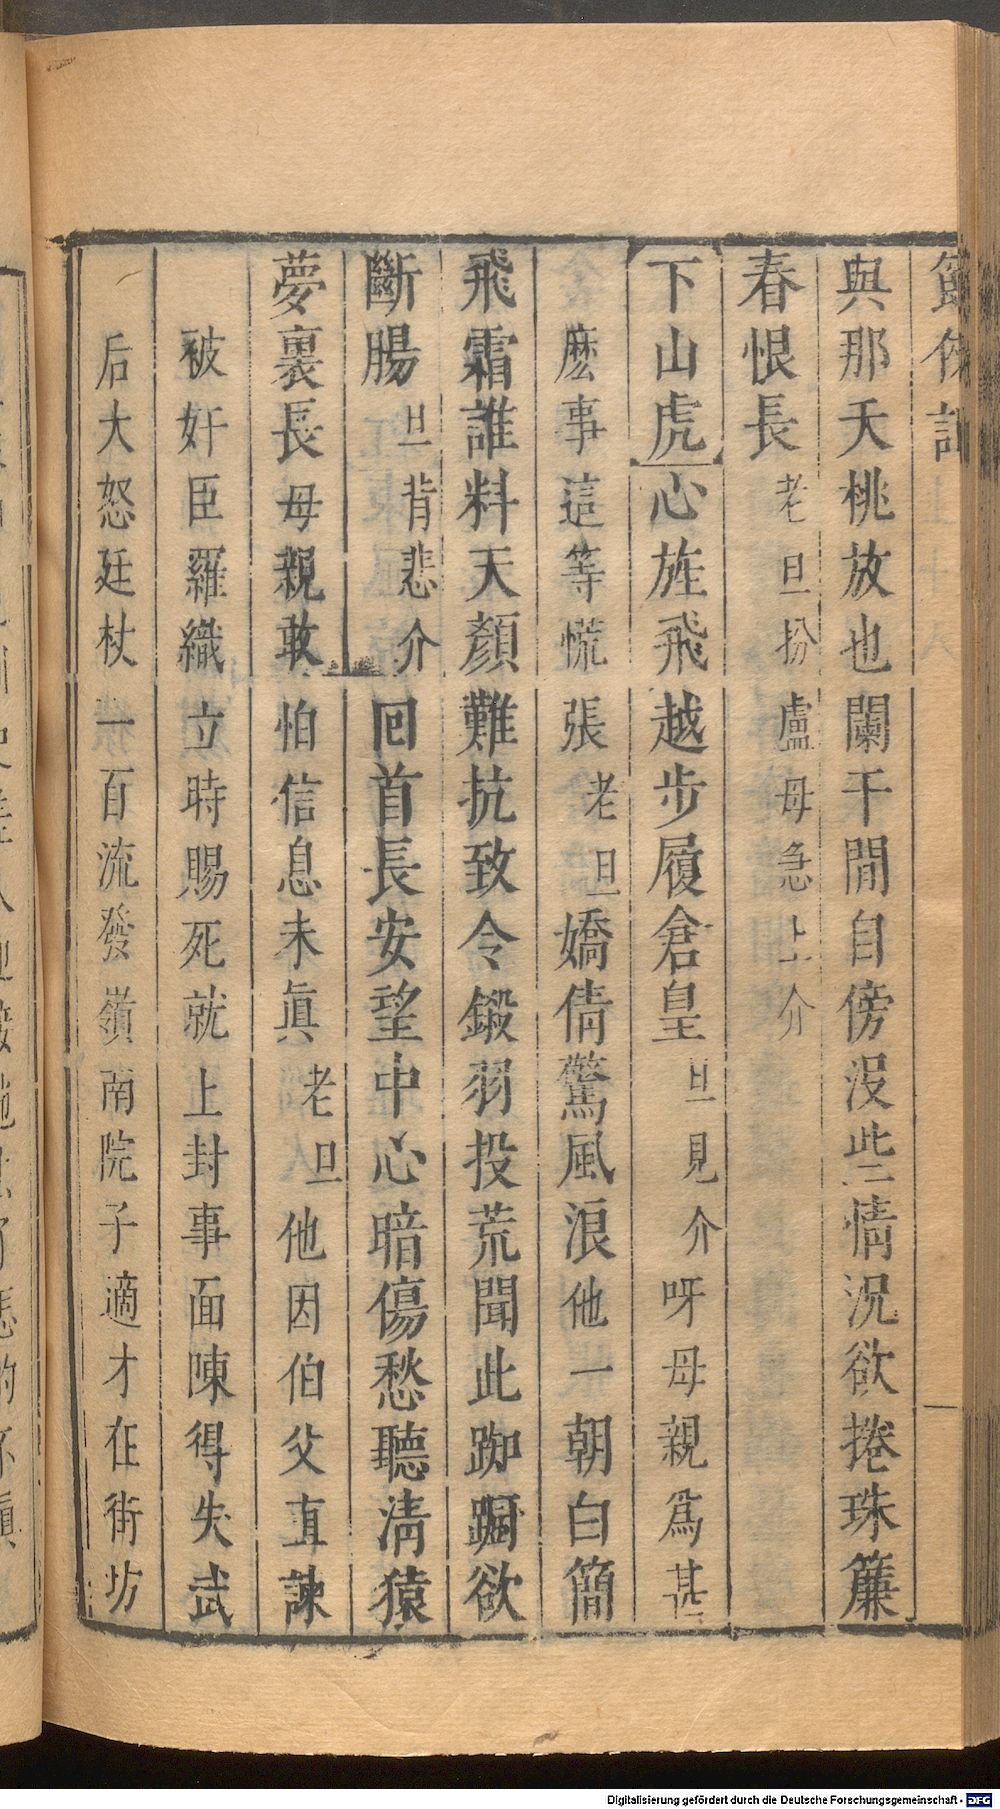 與那夭桃放也闌干間自傍沒些情況欲捲珠簾
春恨長老旦扮盧母急上介
下山虎心旌飛越步履倉皇旦見介呀母親爲甚
麽事這等慌張老旦嬌倩驚風浪他一朝白簡
飛霜誰料天顏難抗致令鎩羽投荒聞此踟躕欲
斷腸旦背悲介回首長安望中心暗傷愁聽清猿
夢裏長母親敢怕信息未眞老旦他因伯父直諫
被奸臣羅織立時賜死就上封事面陳得失武
后大怒廷杖一百流發嶺南院子適才在街坊
Digitalisierung gefördert durch die Deutsche Forschungsgemeinschaft - DFG